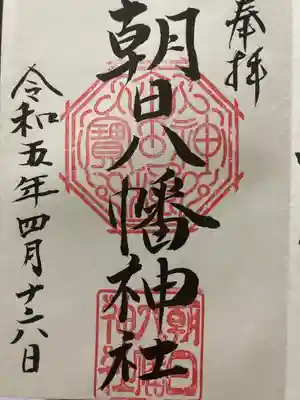 奉拝
朝日八幡神社
令和五年四月十六日